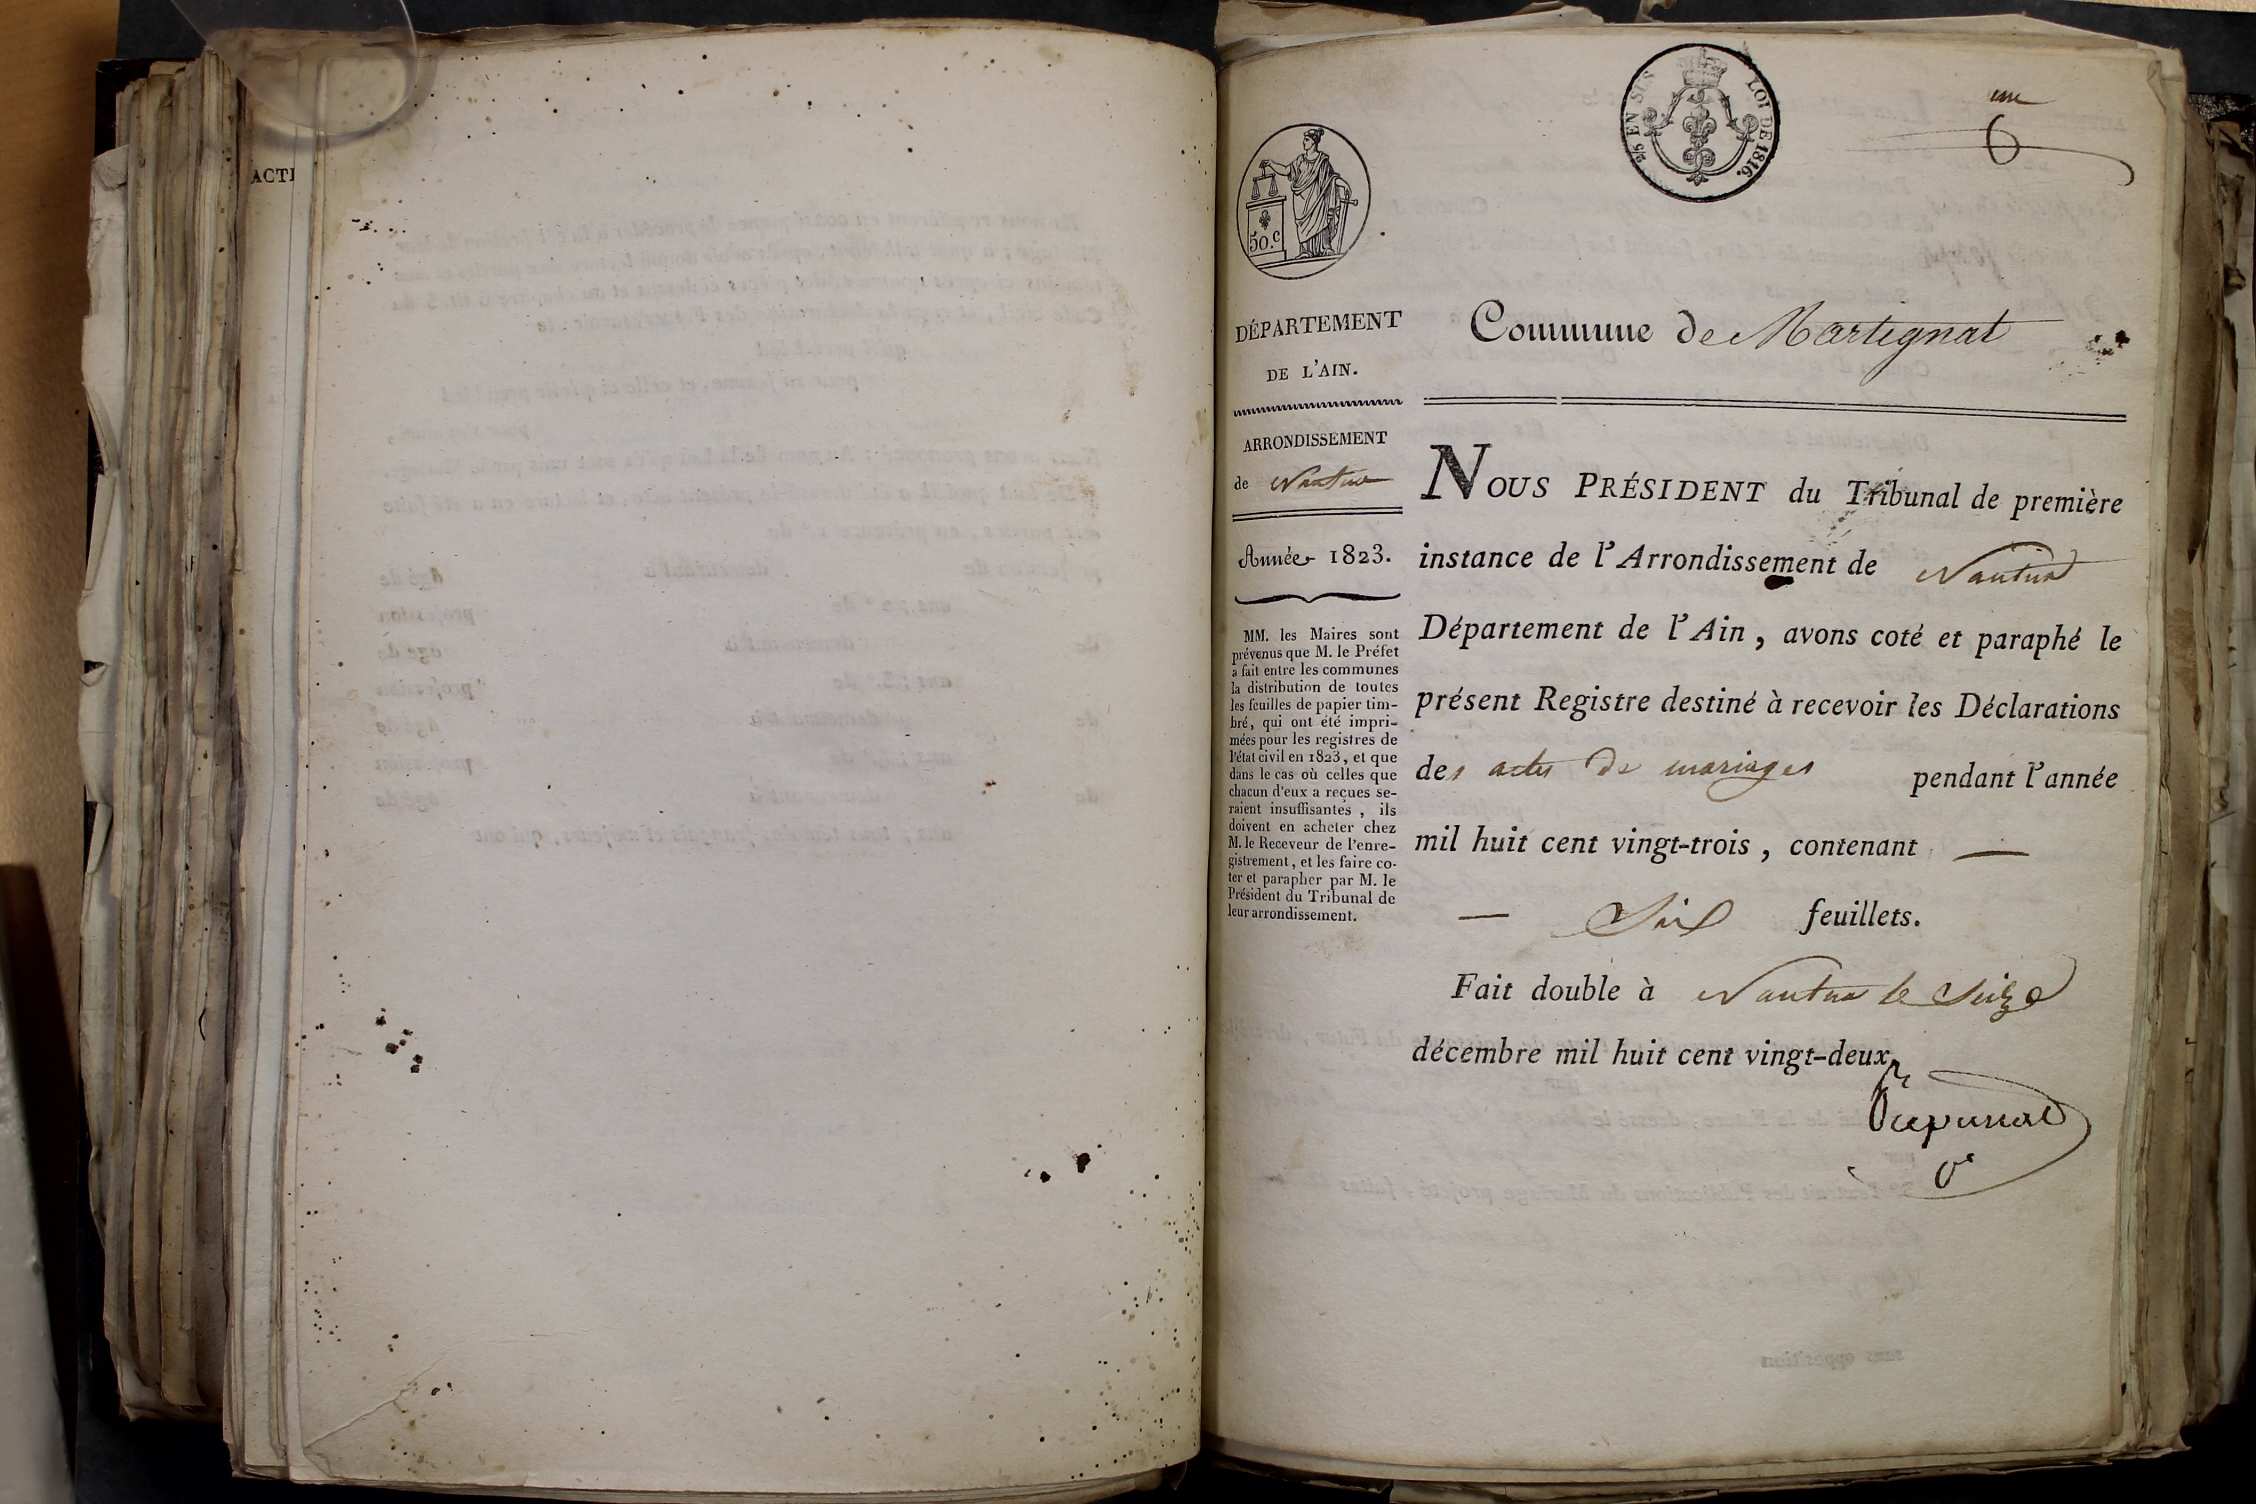 ACTE
2/5 EN SUS LOI DE 1816.
50.c
DÉPARTEMENT
DE L'AIN.
ARRONDISSEMENT
de Nantua
Année 1823.
MM. les Maires sont
prévenus que M. le Préfet
a fait entre les communes
la distribution de toutes
les feuilles de papier tim-
bré, qui ont été impri-
mées pour les registres de
l'état civil en 1823, et que
dans le cas où celles que
chacun d'eux a reçues se-
raient insuffisantes, ils
doivent en acheter chez
M. le Receveur de l'enre-
gistrement, et les faire co-
ter et parapher par M. le
Président du Tribunal de
leur arrondissement.
Commune de Martignat
NOUS PRÉSIDENT du Tribunal de première
instance de l'Arrondissement de Nantua
Département de l'Ain, avons coté et paraphé le
présent Registre destiné à recevoir les Déclarations
des actes de mariages pendant l'année
mil huit cent vingt-trois, contenant —
— Six feuillets.
Fait double à Nantua le Seize
décembre mil huit cent vingt-deux